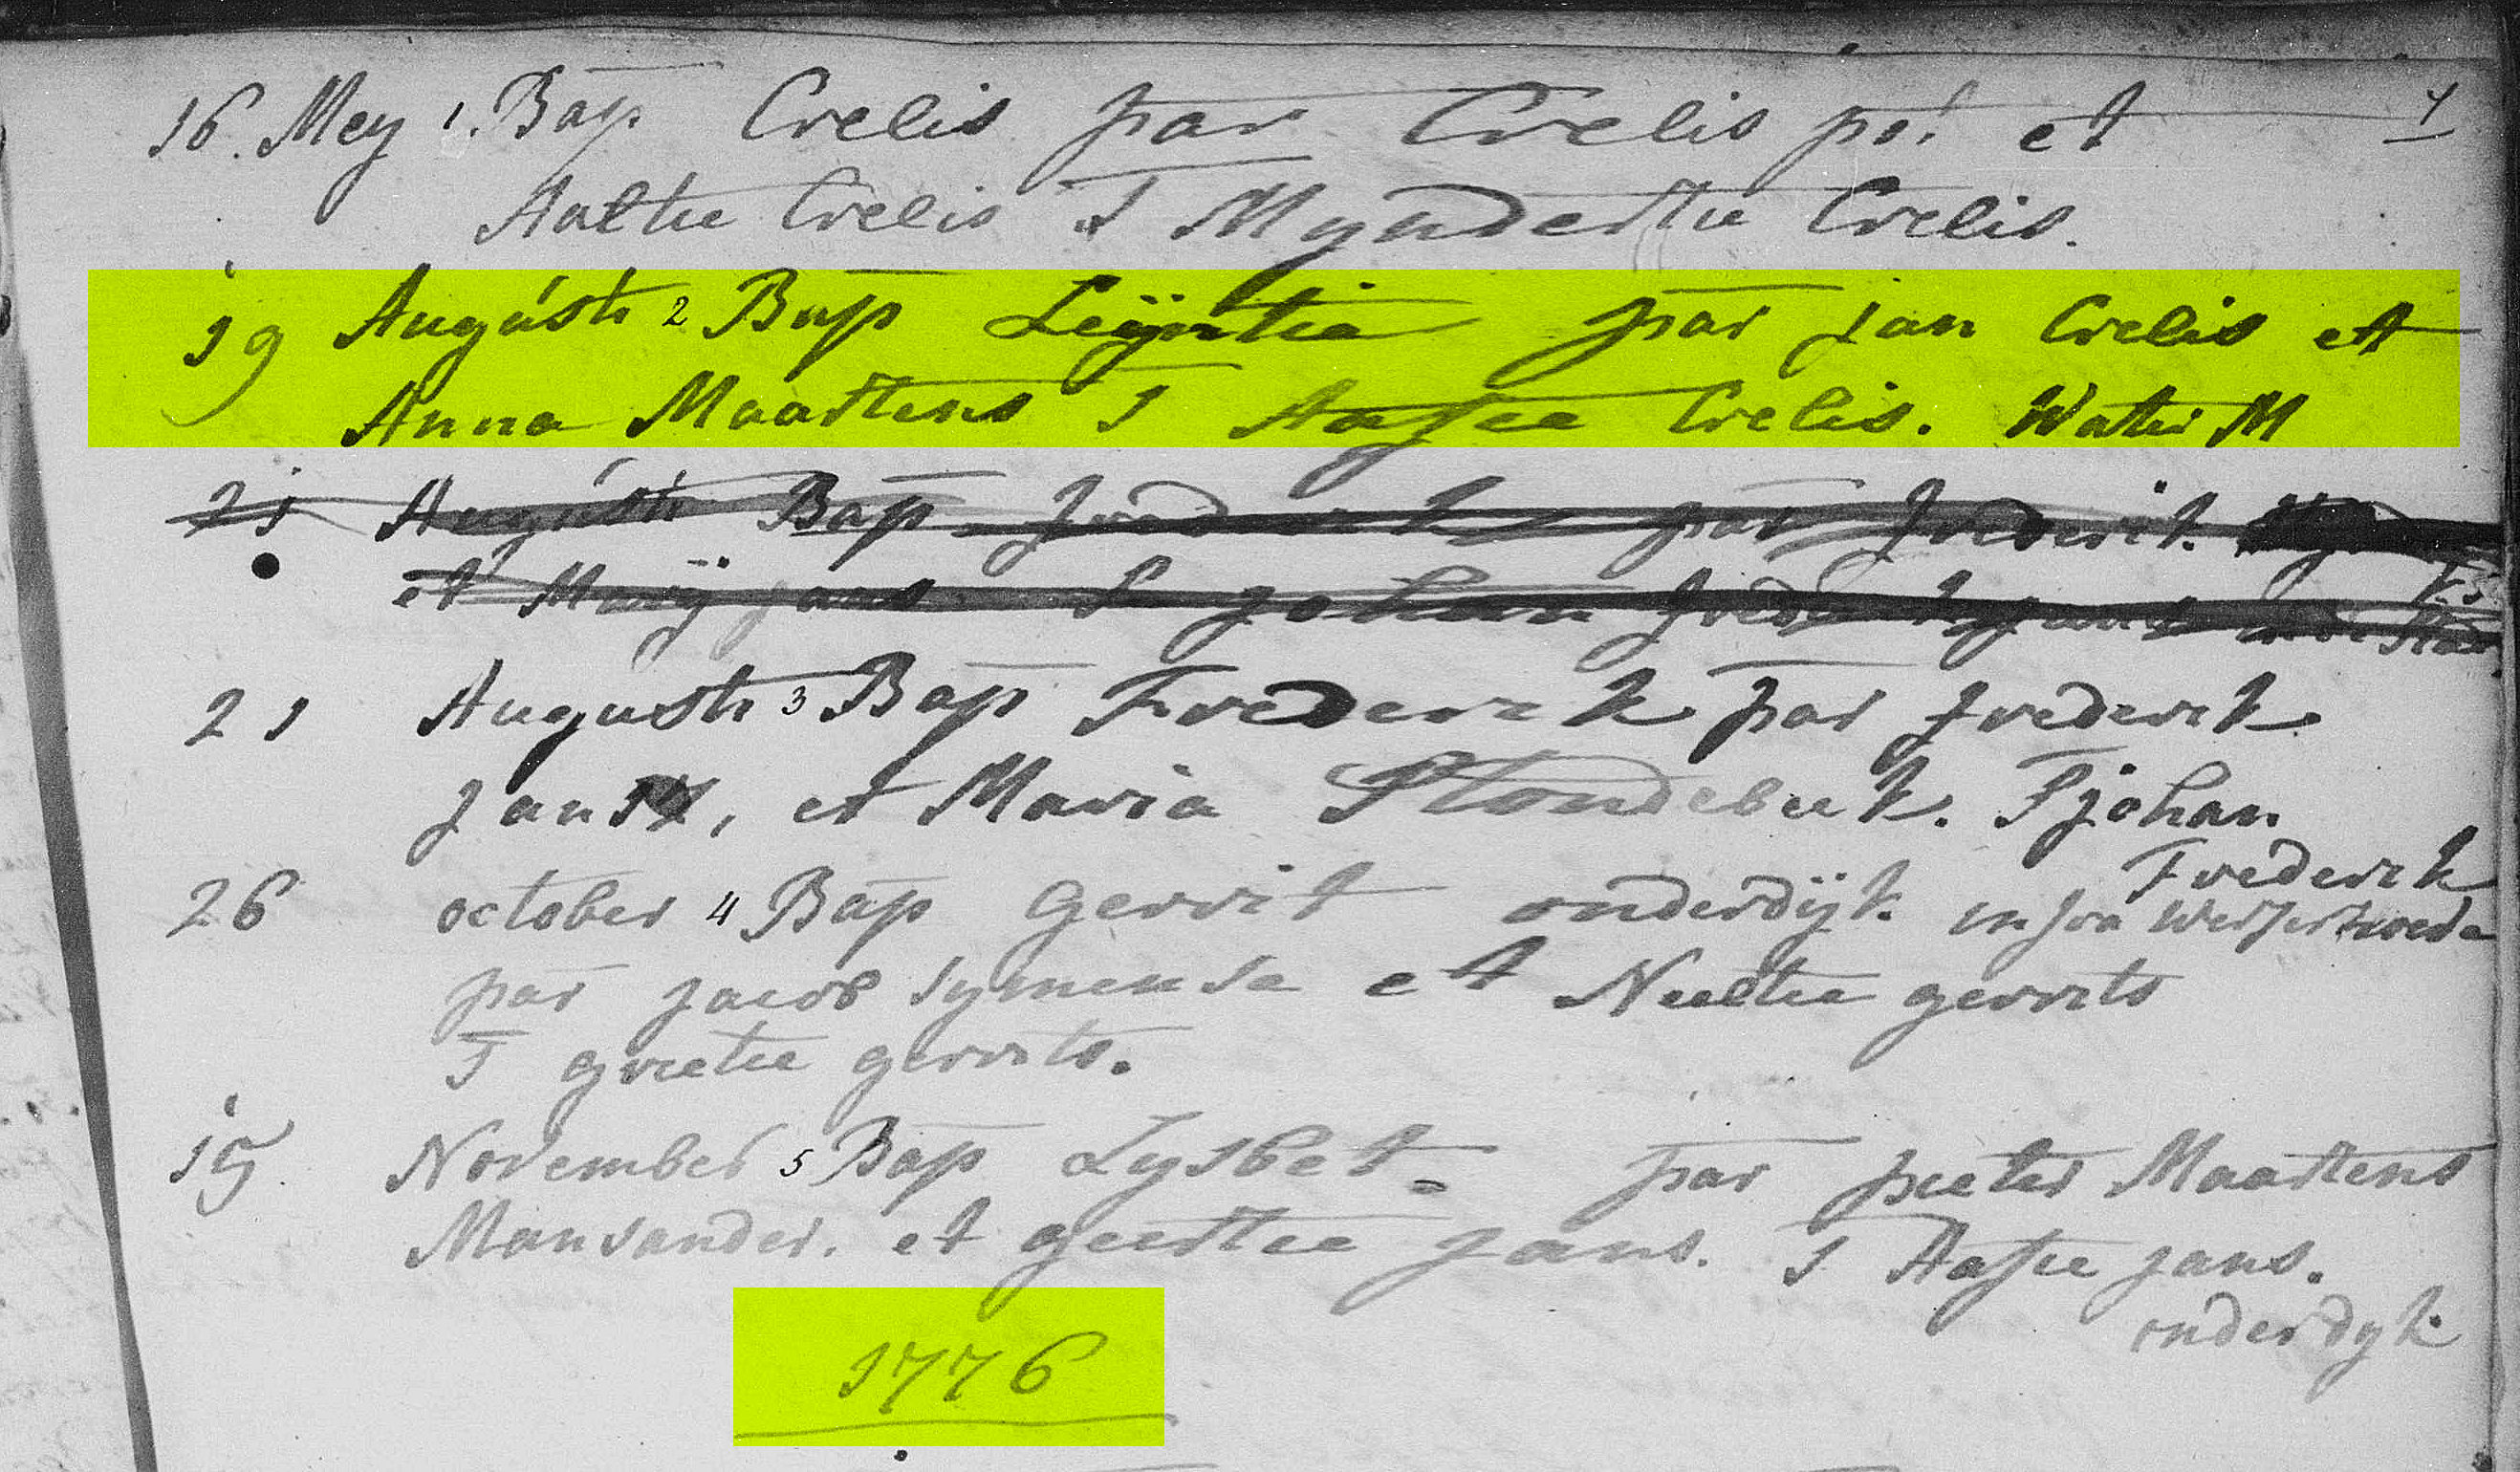 16. Mey 1. Bap Crelis par Crelis ps! et 7
Aaltie Crelis T Myndertie Crelis.
19 Augusti 2 Bap Leÿntie par jan Crelis et
Anna Maartens T Aafie Crelis. Water M
21 Augusti Bap frederik par frederik.
et Marÿ jans T johan
21 Augusti 3 Bap Frederik par frederik
jans, et Maria Stondebeek. T johan
Frederik
26 october 4 Bap Gerrit onderdÿk.
par jacob symense et Neeltie gerrits
T grietie gerrits.
15 November 5 Bap Lysbet par pieter Maartens
Mansander. et geertie jans. T Aafie jans.
onderdyk
1776